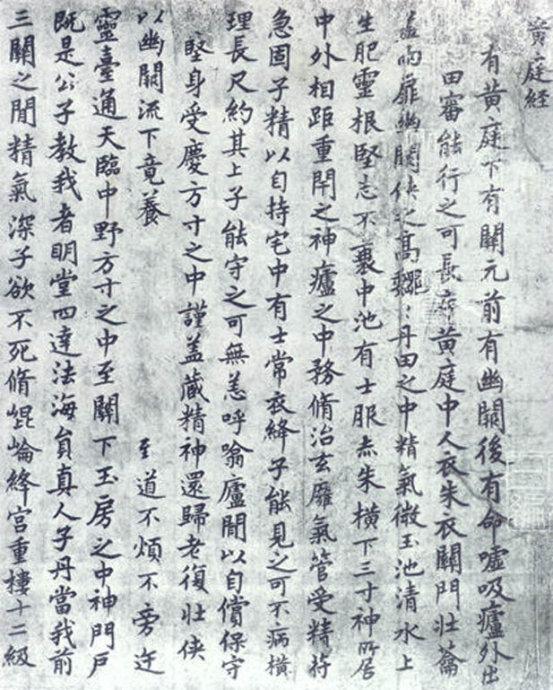 黃庭經
有黃庭下有關元前有幽闕後有命噓吸廬外出
田審能行之可長存黃庭中人衣朱衣關門壯蘥
蓋兩扉幽闕俠之高巍〻丹田之中精氣微玉池清水上
生肥靈根堅志不衰中池有士服赤朱橫下三寸神所居
中外相距重閇之神廬之中務脩治玄廱氣管受精符
急固子精以自持宅中有士常衣絳子能見之可不病橫
理長尺約其上子能守之可無恙呼噏廬閒以自償保守
堅身受慶方寸之中謹蓋藏精神還歸老復壯俠
以幽闕流下竟養 至道不煩不旁迕
靈臺通天臨中野方寸之中至關下玉房之中神門戶
既是公子教我者明堂四達法海員真人子丹當我前
三關之閒精氣深子欲不死脩崐崘絳宮重樓十二級